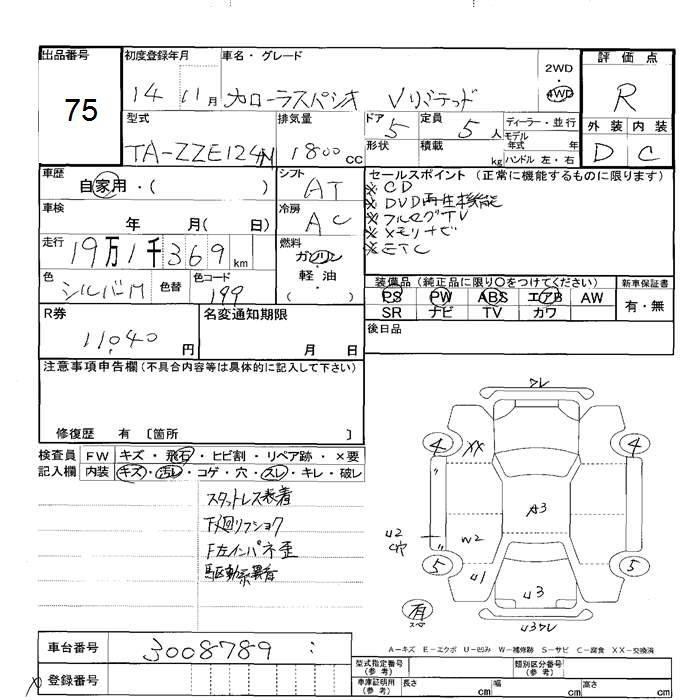 出品番号 初度登録年月 車名・グレード 2WD 4WD 評価点
75
14 11月 カローラスパシオ Vリミテッド R
型式 排気量 ドア 定員 ディーラー・並行 外装 内装
TA-ZZE124N 1800cc 5 5人 モデル年式 年 D C
形状 積載 kg ハンドル 左・右
車歴 シフト セールスポイント(正常に機能するものに限ります)
自家用・( ) AT
※ CD
※ DVD再生機能
※ フルセグTV
※ メモリナビ
※ ETC
車検 冷房
年 月( 日) AC
走行 燃料
19万1千369km ガソリン・軽油 ( )
色 色替 色コード
シルバーM 199
装備品(純正品に限り○をつけてください) 新車保証書
PS PW ABS エアB AW 有・無
SR ナビ TV カワ
R券 名変通知期限 後日品
11,040円 月 日
注意事項申告欄(不具合内容等は具体的に記入して下さい)
修復歴 有 〔箇所 〕
検査員 FW キズ・飛石・ヒビ割・リペア跡・×要
記入欄 内装 キズ・汚れ・コゲ・穴・スレ・キレ・破レ
スタットレス装着
下廻リフショク
F左インパネ歪
駆動系異音
ワレ
4 XX 4
A3
U2
W2
5 U1 U3 5
有 スペア
U3ワレ
A-キズ E-エクボ U-凹み W-補修跡 S-サビ C-腐食 XX-交換済
車台番号 3008789 :
登録番号
型式指定番号(参考) 類別区分番号(参考)
車庫証明用(参考) 長さ cm 幅 cm 高さ cm